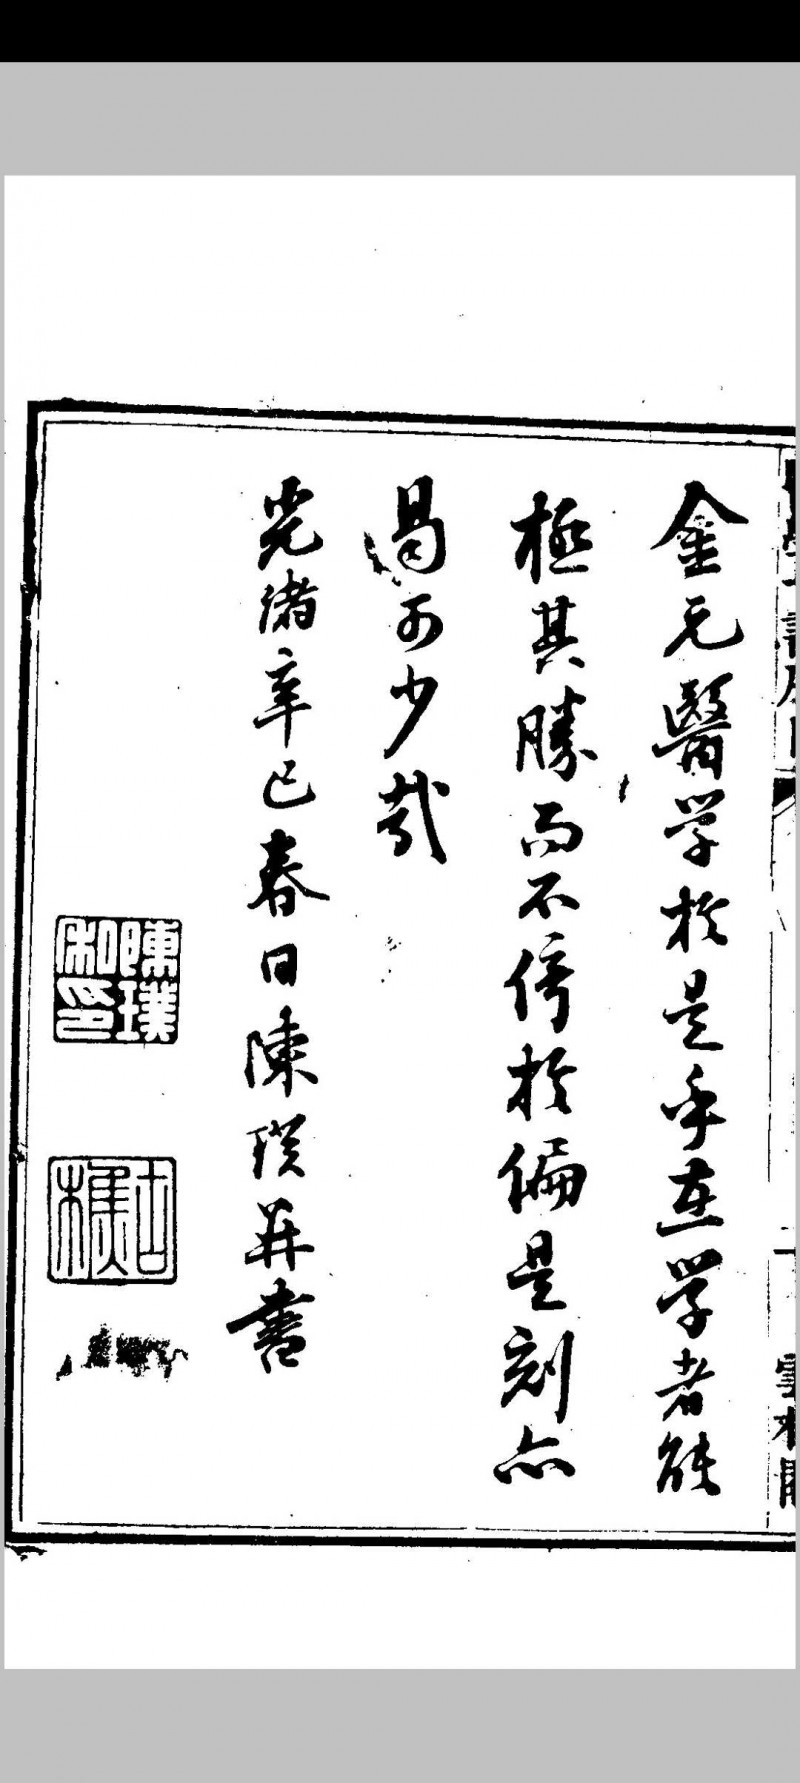 金元醫学於是乎在学者能
極其勝而不停於偏是刻亦
曷可少哉
光緒辛巳春日陳璞并書
陳璞
私印
古樵